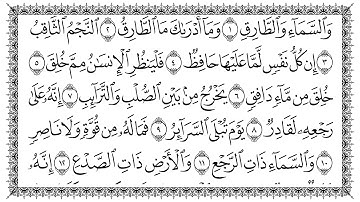 وَالسَّمَاءِ وَالطَّارِقِ ١ وَمَا أَدْرَىٰكَ مَا الطَّارِقُ ٢ النَّجْمُ الثَّاقِبُ
٣ إِن كُلُّ نَفْسٍ لَّمَّا عَلَيْهَا حَافِظٌ ٤ فَلْيَنظُرِ الْإِنسَٰنُ مِمَّ خُلِقَ ٥
خُلِقَ مِن مَّاءٍ دَافِقٍ ٦ يَخْرُجُ مِن بَيْنِ الصُّلْبِ وَالتَّرَائِبِ ٧ إِنَّهُ عَلَىٰ
رَجْعِهِ لَقَادِرٌ ٨ يَوْمَ تُبْلَى السَّرَائِرُ ٩ فَمَا لَهُ مِن قُوَّةٍ وَلَا نَاصِرٍ
١٠ وَالسَّمَاءِ ذَاتِ الرَّجْعِ ١١ وَالْأَرْضِ ذَاتِ الصَّدْعِ ١٢ إِنَّهُ